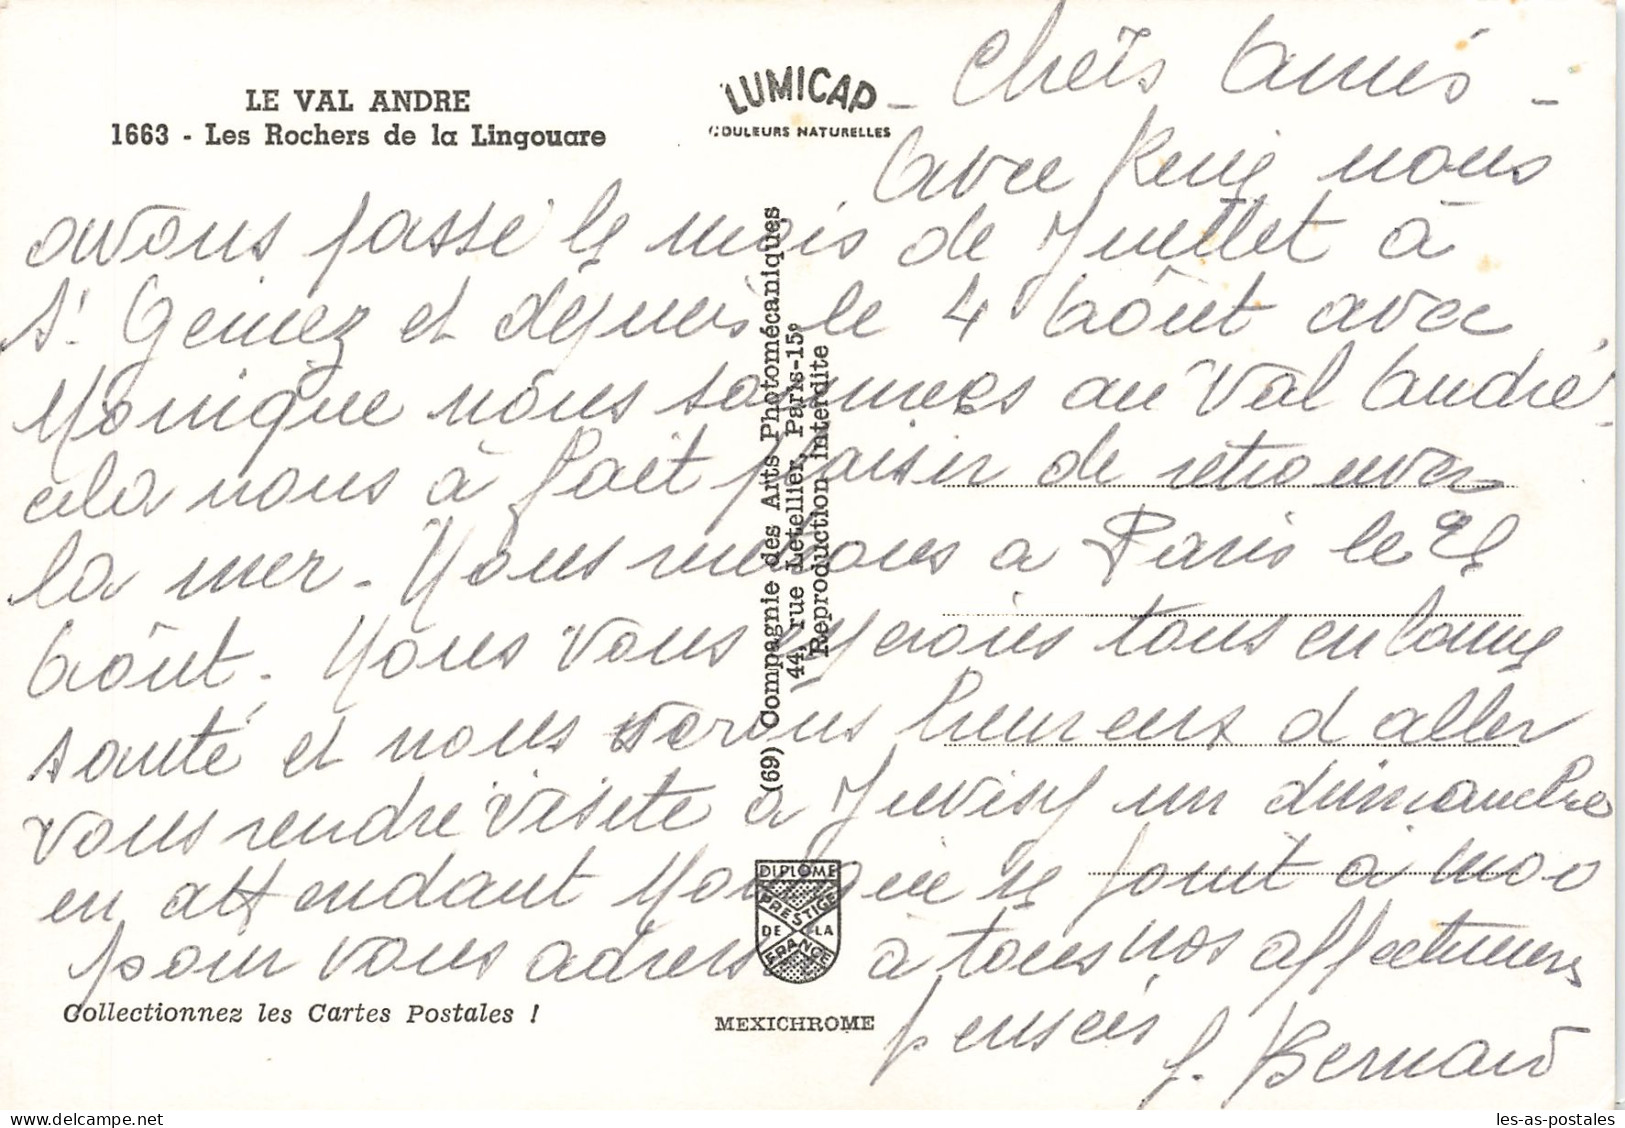 LE VAL ANDRE
1663 - Les Rochers de la Lingouare
LUMICAP
COULEURS NATURELLES
Chers Amis -
Avec nous
avons passé le mois de Juillet à
St Geniez et depuis le 4 Août avec
Monique nous sommes au Val André
cela nous à fait plaisir de retrouver
la mer - Nous rentrons a Paris le
Août - Nous vous espérons tous en bonne
santé et nous serons heureux d aller
vous rendre visite a Juvisy un dimanche
en attendant Monique se joint à moi
pour vous adresser à tous nos affectueuses
pensées J. Bernard
(69) Compagnie des Arts Photomécaniques,
44, rue Letellier, Paris-15e
Reproduction interdite
DIPLOME
PRESTIGE
DE LA
FRANCE
Collectionnez les Cartes Postales !
MEXICHROME
les-as-postales